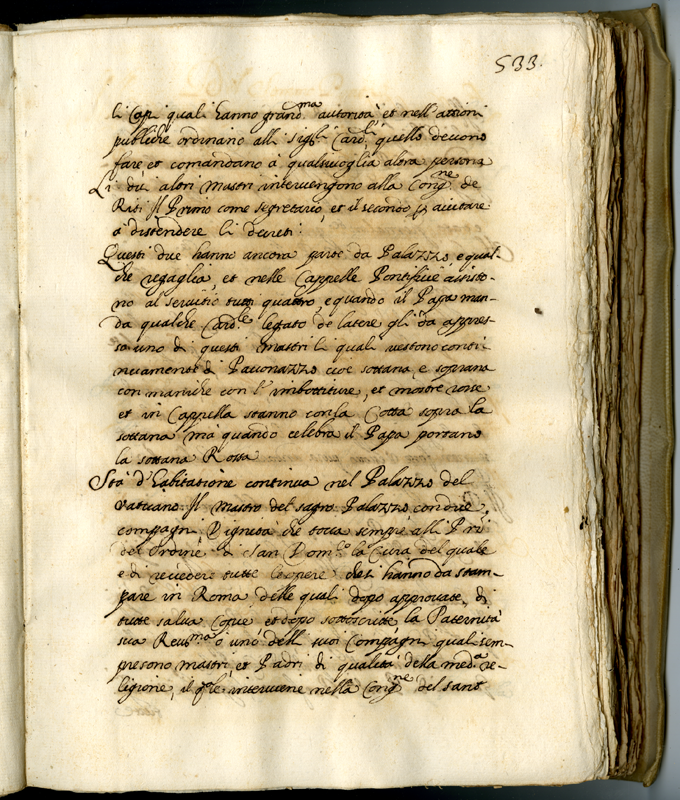 533.
li Capi quali hanno grand.ma autorità et nell'attioni
publiche ordinano alli Sig.ri Card.li quello devono
fare et comandano à qualsivoglia altra persona
Li dui altri Mastri intervengono alla Cong.ne de
Riti Il Primo come segretario, et il secondo p aiutare
à distendere li decreti:
Questi due hanno ancora parte da Palazzo e qual-
che regaglia, et nelle Cappelle Pontificie assisto-
no al servitio tutti quattro, e quando il Papa man-
da qualche Card.le legato de latere gli dà appres-
so uno di questi Mastri li quali vestono conti-
nuamente di Pauonazzo cioè sottana e soprana
con maniche con l'imbottiture, et mostre rosse
et in Cappella stanno con la Cotta sopra la
sottana mà quando celebra il Papa portano
la sottana Rossa
Stà d'habitatione continua nel Palazzo del
Vaticano Il Mastro del sagro Palazzo con due
compagni, Dignità che tocca sempre alli P.ri
del Ordine di San Dom.co la Cura del quale
e di revedere tutte le opere che si hanno da stam-
pare in Roma delle quali dopo approvate, di
tutte salva Copie et dopo sottoscritte la Paternità
sua Reu.ma ò uno delli suoi Compagni quali sem-
pre sono mastri, et Padri di qualità della med.a re-
ligione, il q.le interviene nella Cong.ne del Santo